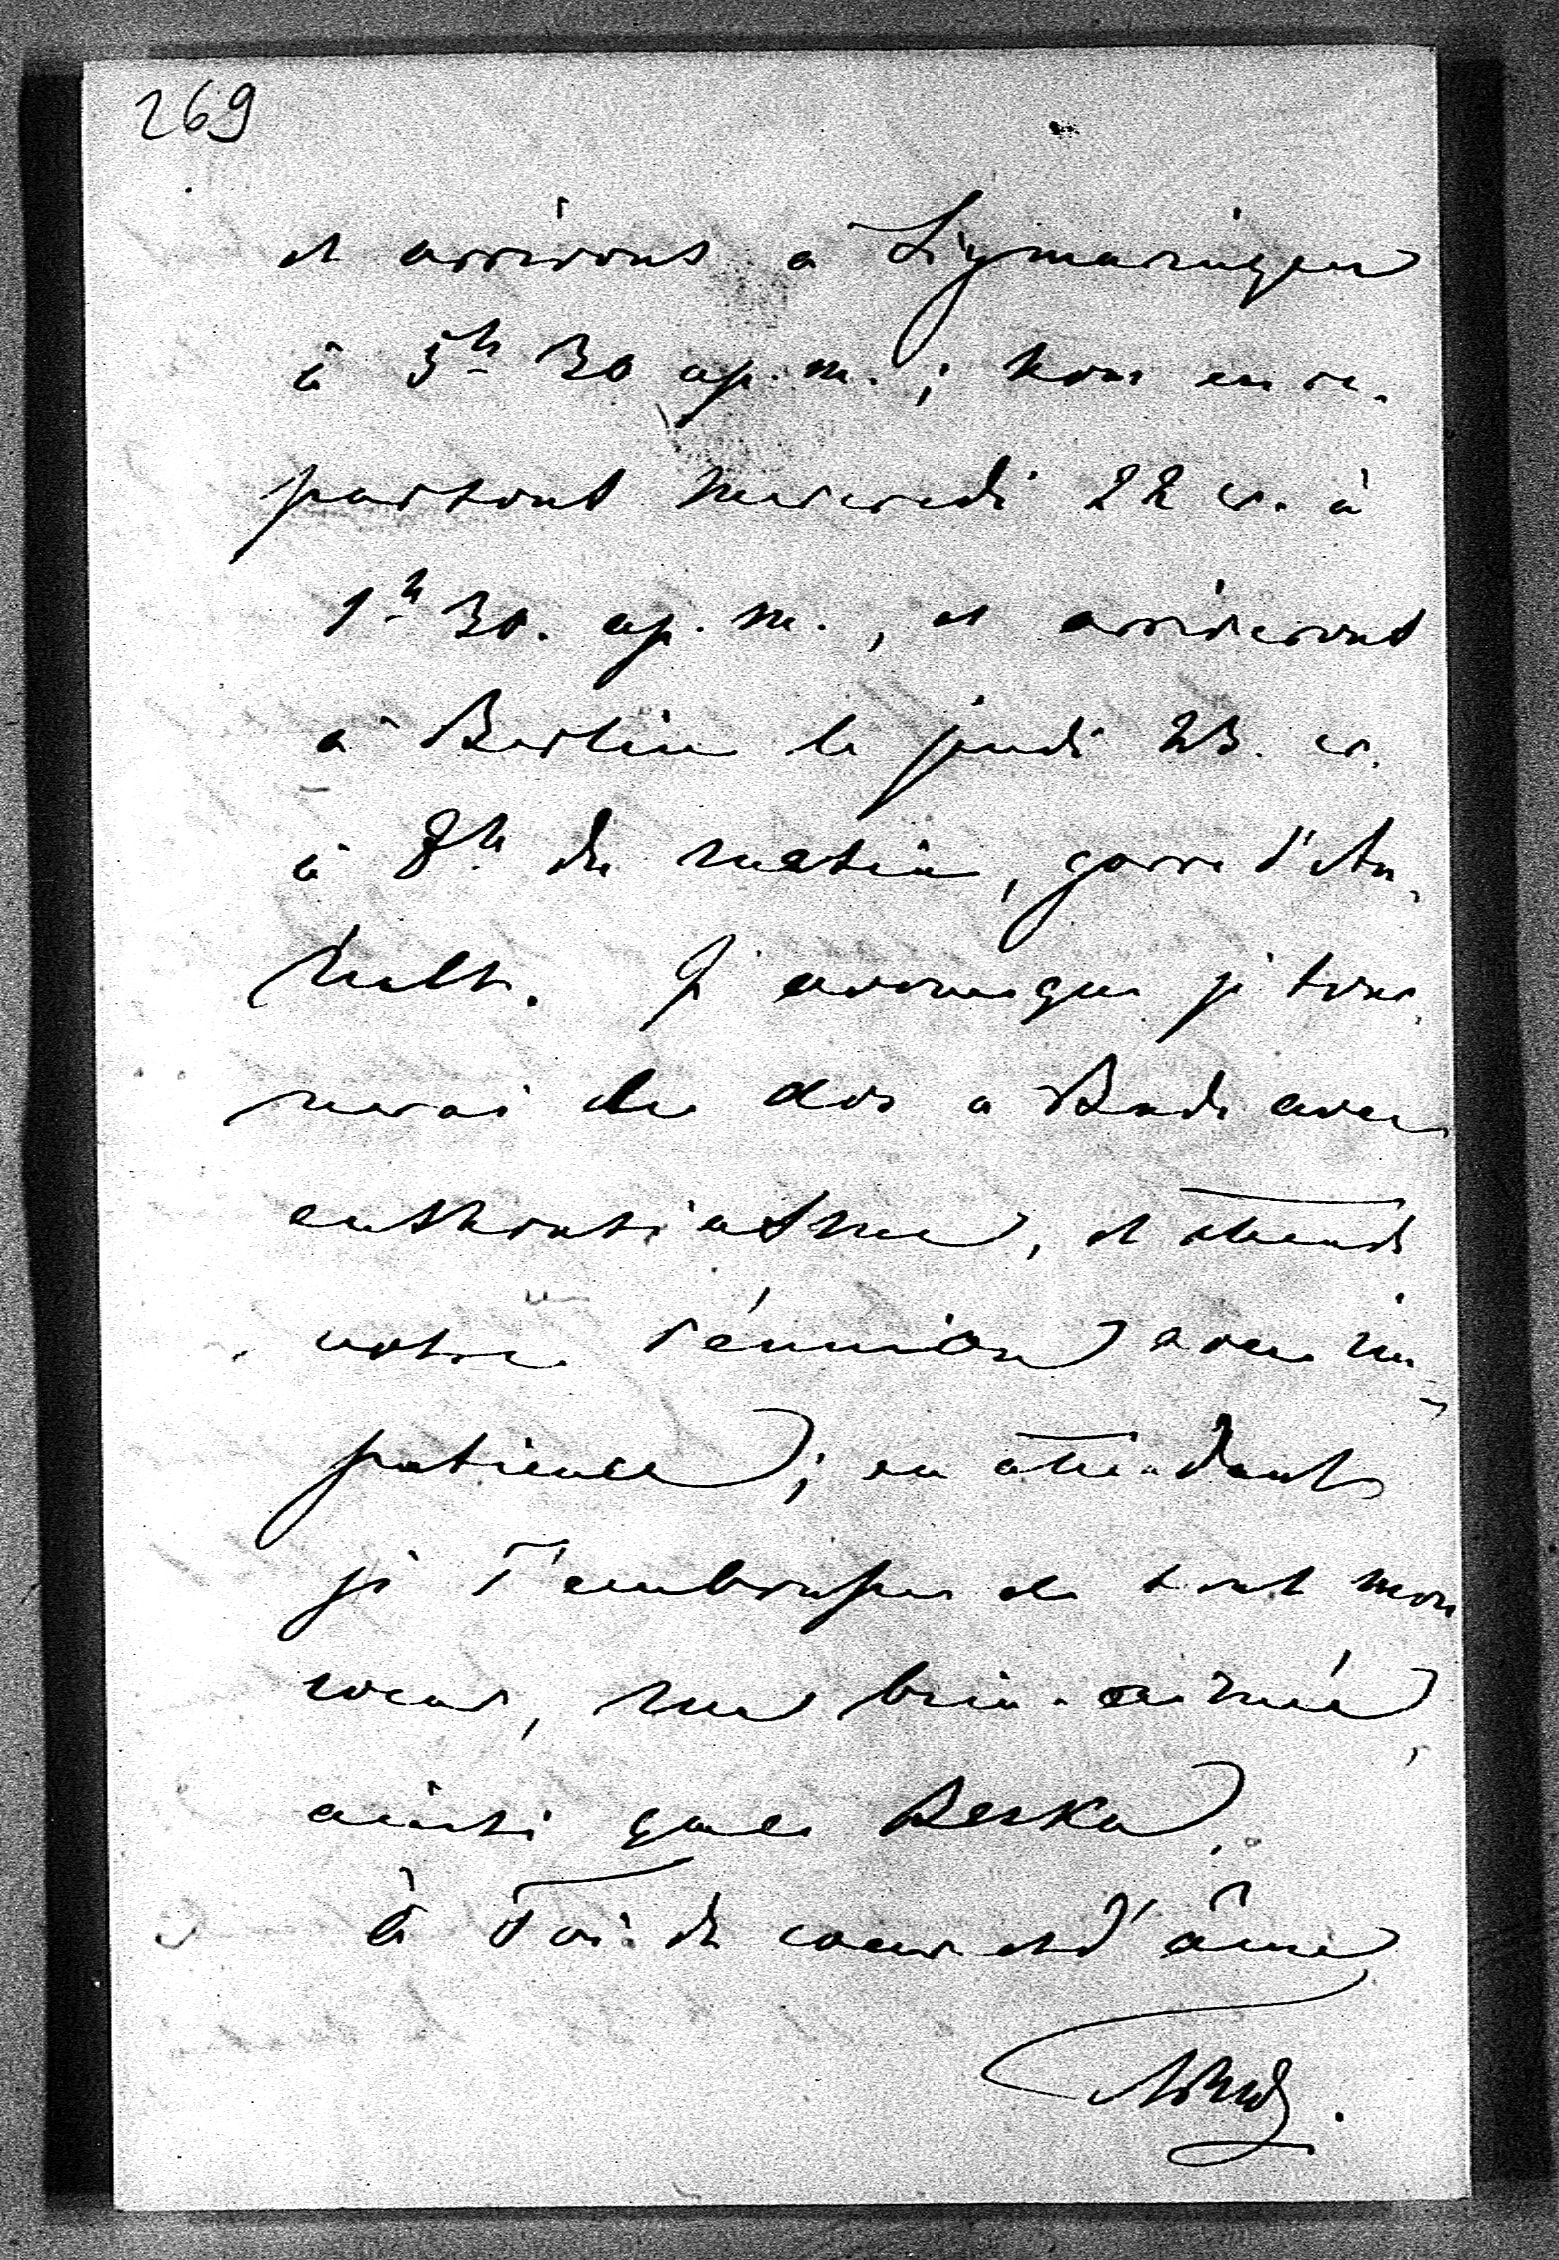 269
et arrivons à Sigmaringen
à 5h 30 ap. m.; nous en re-
partons mercredi 22 cr. à
1h 30. ap. m., et arriverons
à Berlin le jeudi 23. cr.
à 8h du matin, garre d'An-
halt. J'avoue que je tour-
nerai le dos à Bade avec
enthousiasme, et attends
notre réunion avec im-
patience; en attendant
je T'embrasse de tout mon
coeur, ma bien-aimée,
ainsi que
à Toi de coeur et d'âme